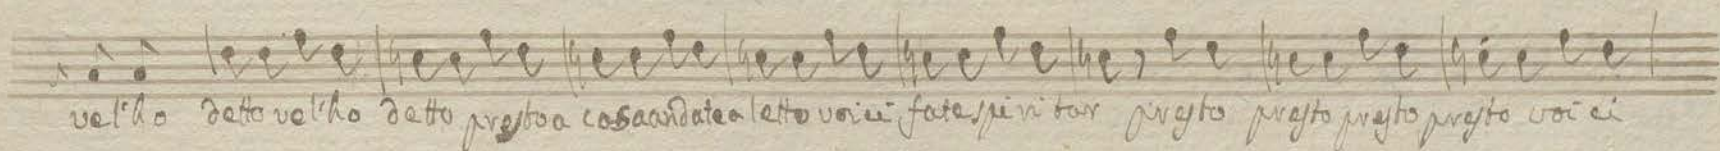 vel'ho detto vel'ho detto presto a casa andate a letto voi ci fate spiritar presto presto presto presto voi ci